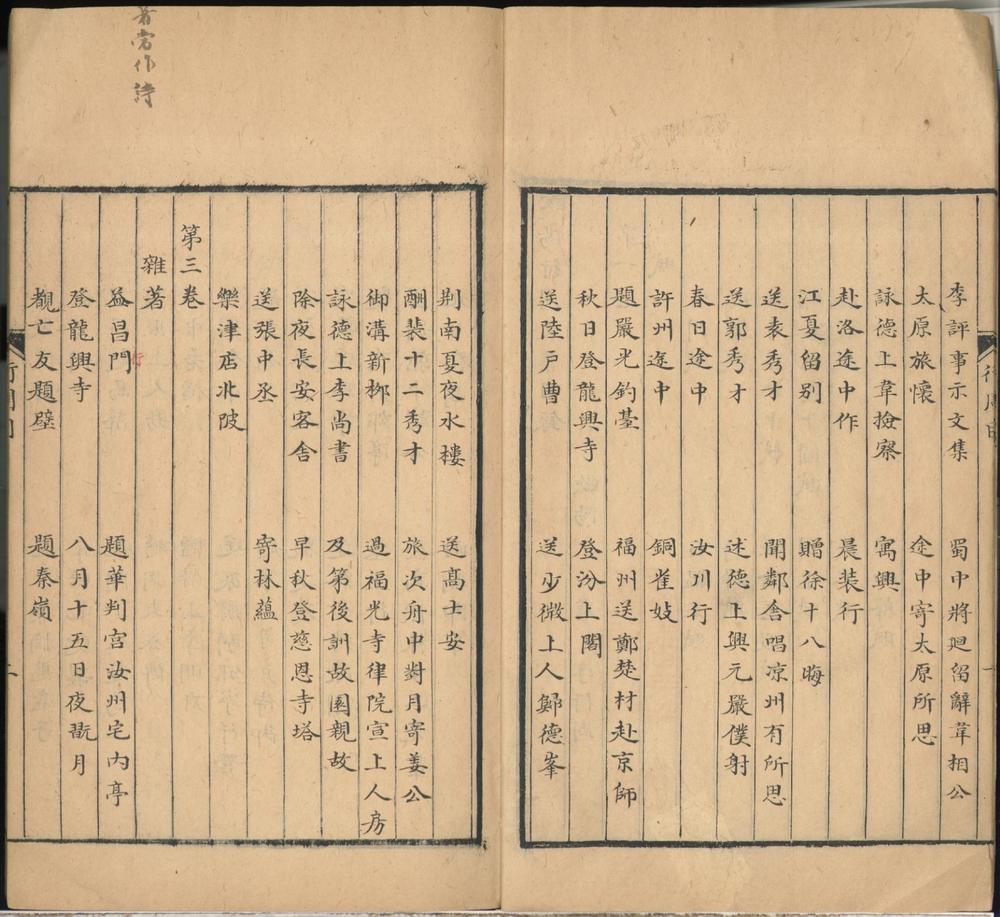 李評事示文集　蜀中將廻留辭韋相公
太原旅懷　途中寄太原所思
詠德上韋撿察　寓興
赴洛途中作　晨装行
江夏留别　贈徐十八晦
送袁秀才　聞鄰舎唱凉州有所思
送郭秀才　述德上興元嚴僕射
春日途中　汝川行
許州途中　銅雀妓
題嚴光釣䑓　福州送鄭楚材赴京師
秋日登龍興寺　登汾上閣
送陸戸曹　送少微上人歸德峯
荆南夏夜水樓　送高士安
酬裴十二秀才　旅次舟中對月寄姜公
御溝新栁　過福光寺律院宣上人房
詠德上李尚書　及第後訓故園親故
除夜長安客舎　早秋登慈恩寺塔
送張中丞　寄林藴
樂津店北陂
第三卷
雜著
益昌門行　題華判官汝州宅内亭
登龍興寺　八月十五日夜翫月
覩亡友題壁　題秦嶺
著當作詩